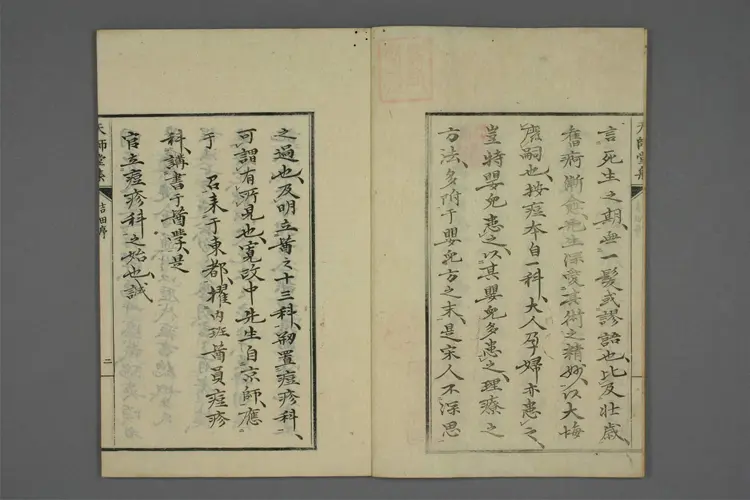 言死生之期無一髮或謬語也比及壯歲
舊痾漸愈先生深愛其術之精妙以大悔
廢嗣也按痘本自一科大人孕婦亦患之
豈特嬰兒患之以其嬰兒多患之理療之
方法多附于嬰兒方之末是宋人不深思
之過也及明立醫之十三科剏置痘疹科
可謂有所見也寬政中先生自京師應
召来于東都擢内班醫員痘疹
科講書于醫學是
官立痘疹科之始也誠
吉田序
二